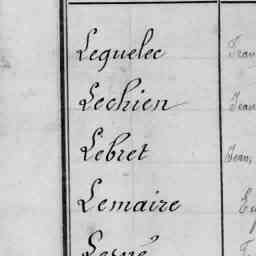 Lequelec Fran
Lechien Jean
Lebret Jean,
Lemaire Eu
Lesné